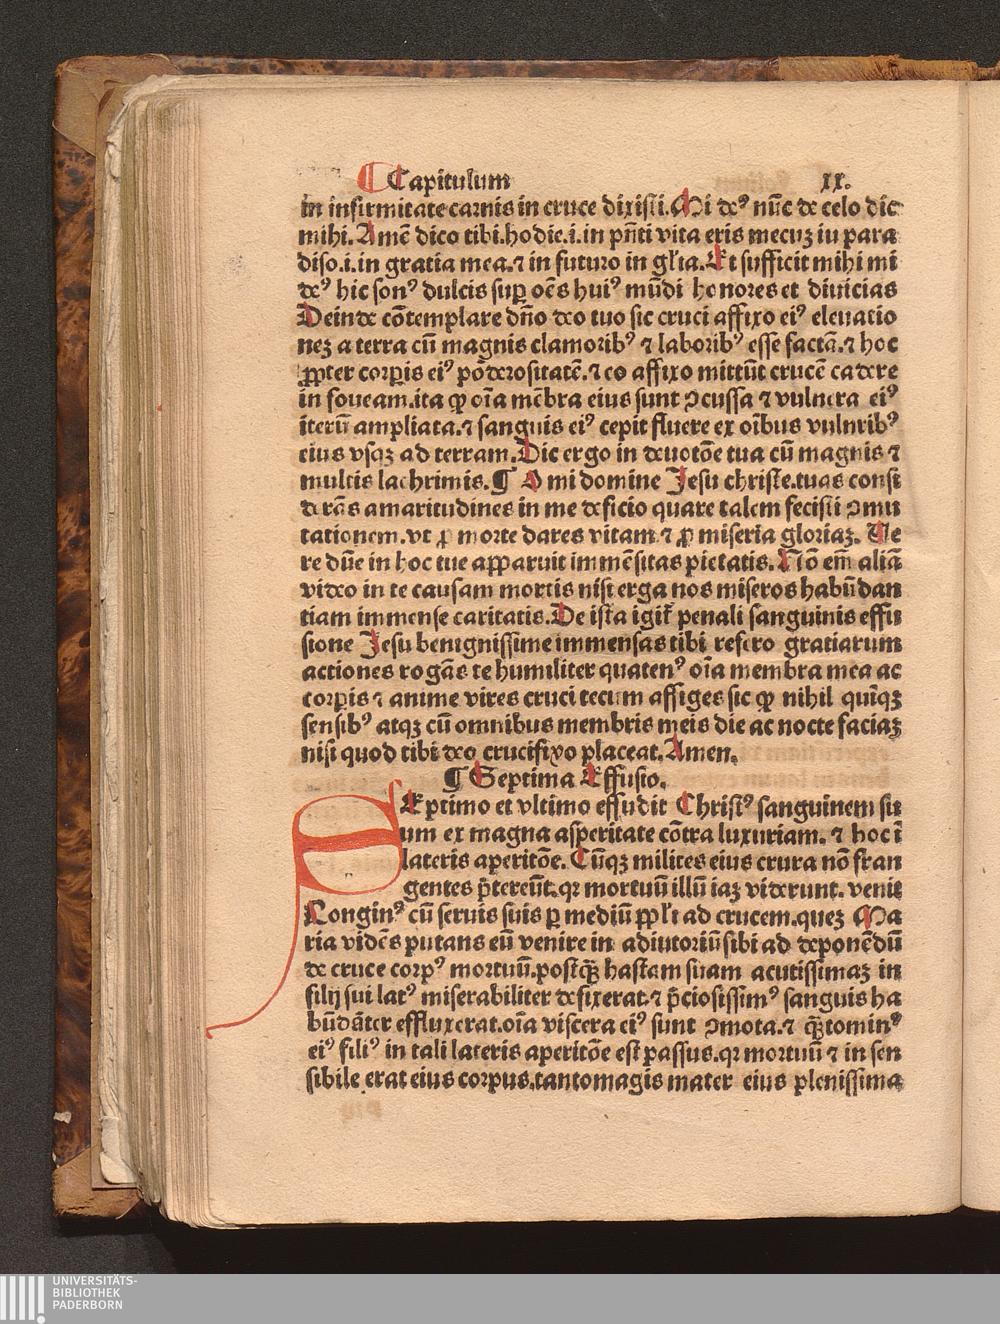 ¶ Capitulum xx.
in infirmitate carnis in cruce dixisti. Mi deꝰ nūc de celo dic
mihi. Amē dico tibi. hodie .i. in pn̄ti vita eris mecuꝫ in para
diso .i. in gratia mea. ⁊ in futuro in gl'ia. Et sufficit mihi mi
deꝰ hic sonꝰ dulcis suꝑ oēs huiꝰ mūdi honores et diuicias
Deinde cōtemplare dn̄o deo tuo sic cruci affixo eiꝰ eleuatio
neꝫ a terra cū magnis clamoribꝰ ⁊ laboribꝰ esse factā. ⁊ hoc
ꝓpter corꝑis eiꝰ pōderositatē. ⁊ eo affixo mittūt crucē cadere
in foueam. ita ꝙ oīa mēbra eius sunt ꝯcussa ⁊ vulnera eiꝰ
iterū ampliata. ⁊ sanguis eiꝰ cepit fluere ex oībus vulnribꝰ
eius vsqꝫ ad terram. Dic ergo in deuotōe tua cū magnis ⁊
multis lachrimis. ¶ O mi domine Jesu christe. tuas consi
derās amaritudines in me deficio quare talem fecisti ꝯmu
tationem. vt ꝓ morte dares vitam ⁊ ꝓ miseria gloriaꝫ. Ve
re dūe in hoc tue apparuit immēsitas pietatis. Nō em̄ aliā
video in te causam mortis nisi erga nos miseros habūdan
tiam immense caritatis. De ista igit̄ penali sanguinis effu
sione Jesu benignissime immensas tibi refero gratiarum
actiones rogās te humiliter quatenꝰ oīa membra mea ac
corꝑis ⁊ anime vires cruci tecum affiges sic ꝙ nihil quīqꝫ
sensibꝰ atqꝫ cū omnibus membris meis die ac nocte faciaꝫ
nisi quod tibi deo crucifixo placeat. Amen.
¶ Septima Effusio.
SEptimo et vltimo effudit Christꝰ sanguinem su
um ex magna asperitate cōtra luxuriam. ⁊ hoc ī
lateris aperitōe. Cūqꝫ milites eius crura nō fran
gentes p̄tereūt. qꝛ mortuū illū iaꝫ viderunt. venit
Longinꝰ cū seruis suis ꝑ mediū ppl'i ad crucem. queꝫ Ma
ria vidēs putans eū venire in adiutoriū sibi ad deponēdū
de cruce corpꝰ mortuū. postq̄ꝫ hastam suam acutissimaꝫ in
filij sui latꝰ miserabiliter defixerat. ⁊ p̄ciosissimꝰ sanguis ha
būdāter effluxerat. oīa viscera eiꝰ sunt ꝯmota. ⁊ q̄ꝫtominꝰ
eiꝰ filiꝰ in tali lateris aperitōe est passus. qꝛ mortuū ⁊ in sen
sibile erat eius corpus. tantomagis mater eius plenissima
UNIVERSITÄTS-
BIBLIOTHEK
PADERBORN